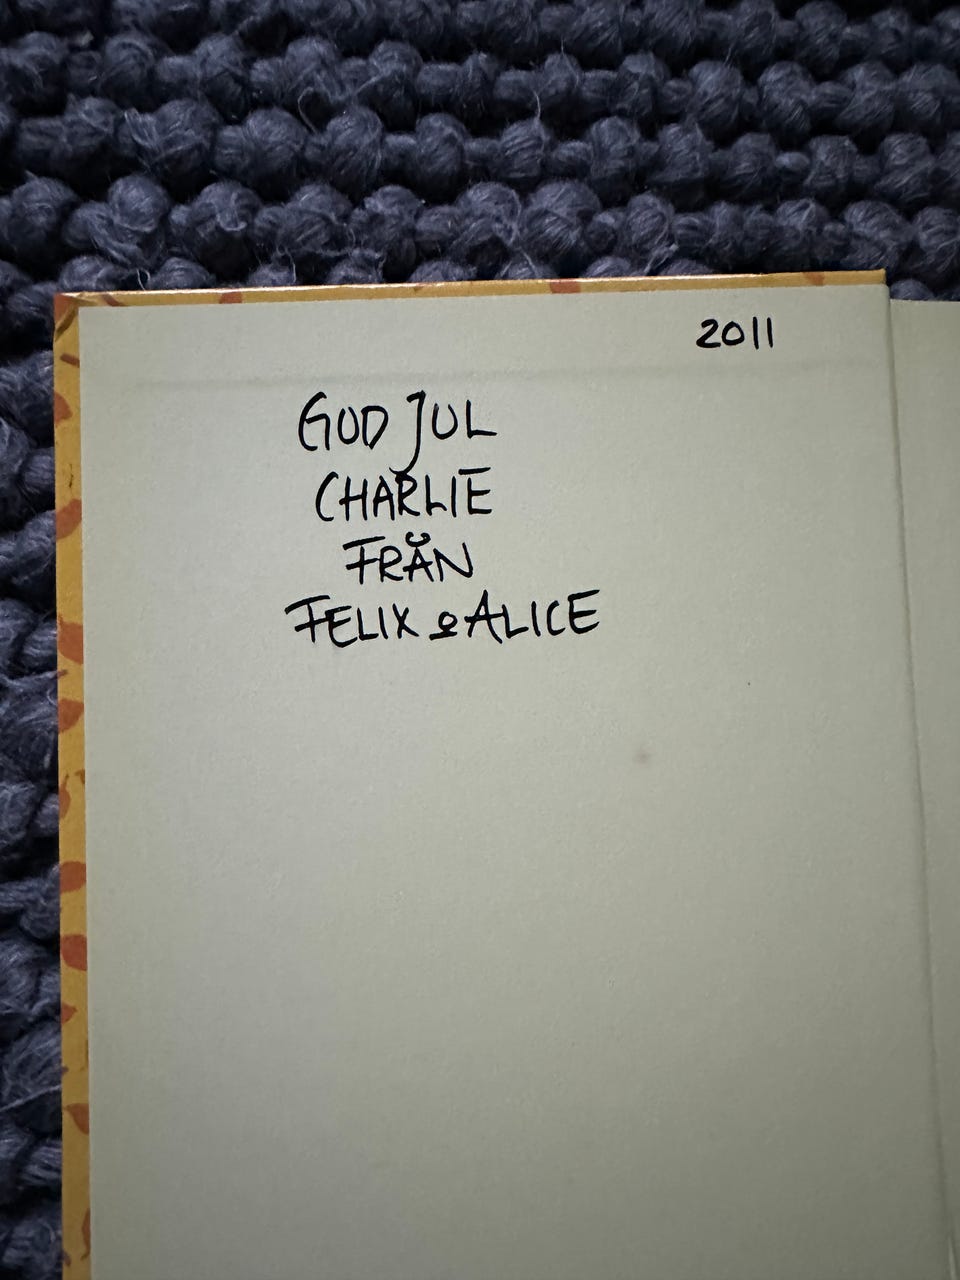 2011
GOD JUL
CHARLIE
FRÅN
FELIX o ALICE